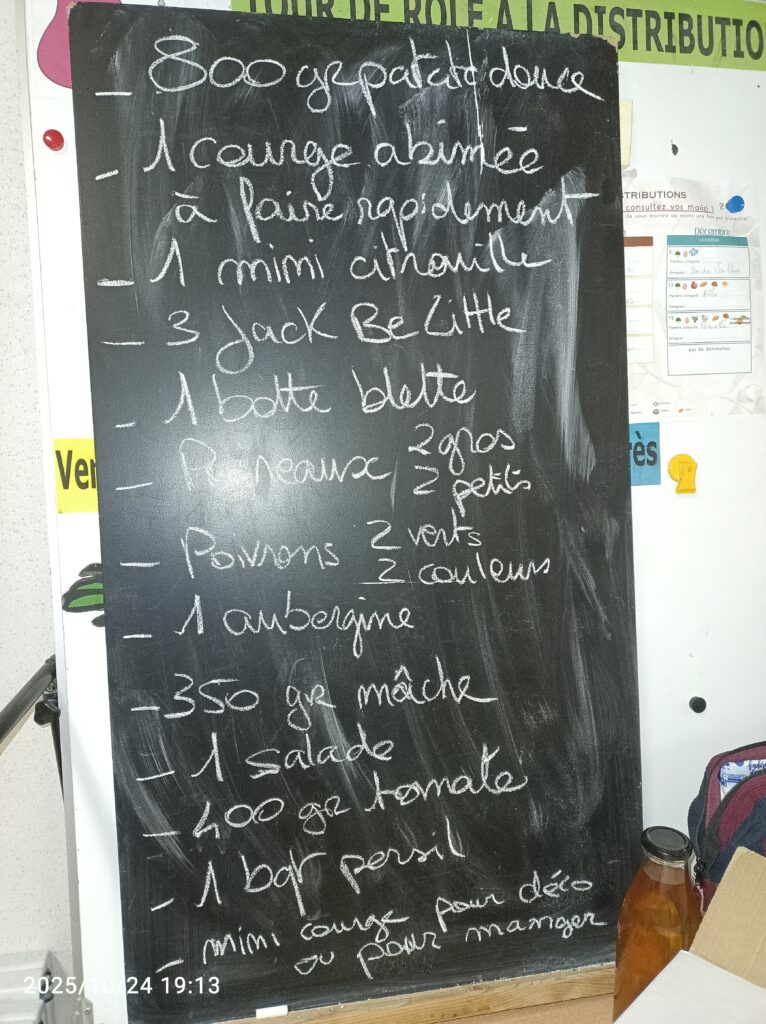 TOUR DE ROLE A LA DISTRIBUTIO
- 800 gr patate douce
- 1 courge abimée
à faire rapidement
- 1 mimi citrouille
- 3 Jack Be Little
- 1 botte blette
- Poireaux 2 gros
2 petits
- Poivrons 2 verts
2 couleurs
- 1 aubergine
- 350 gr mâche
- 1 salade
- 400 gr tomate
- 1 bqt persil
- mimi courge pour déco
ou pour manger
STRIBUTIONS
consultez vos mails
Décembre
pas de distribution
Ven
rès
2025/10/24 19:13